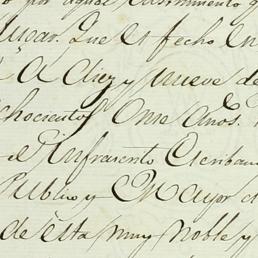 o por aquel
Lugar. Que es fecho en
à Diez y nueve de
chocientos Onse Años.
el Infraesento Escribano
Publico y Mayor d
de esta muy Noble y